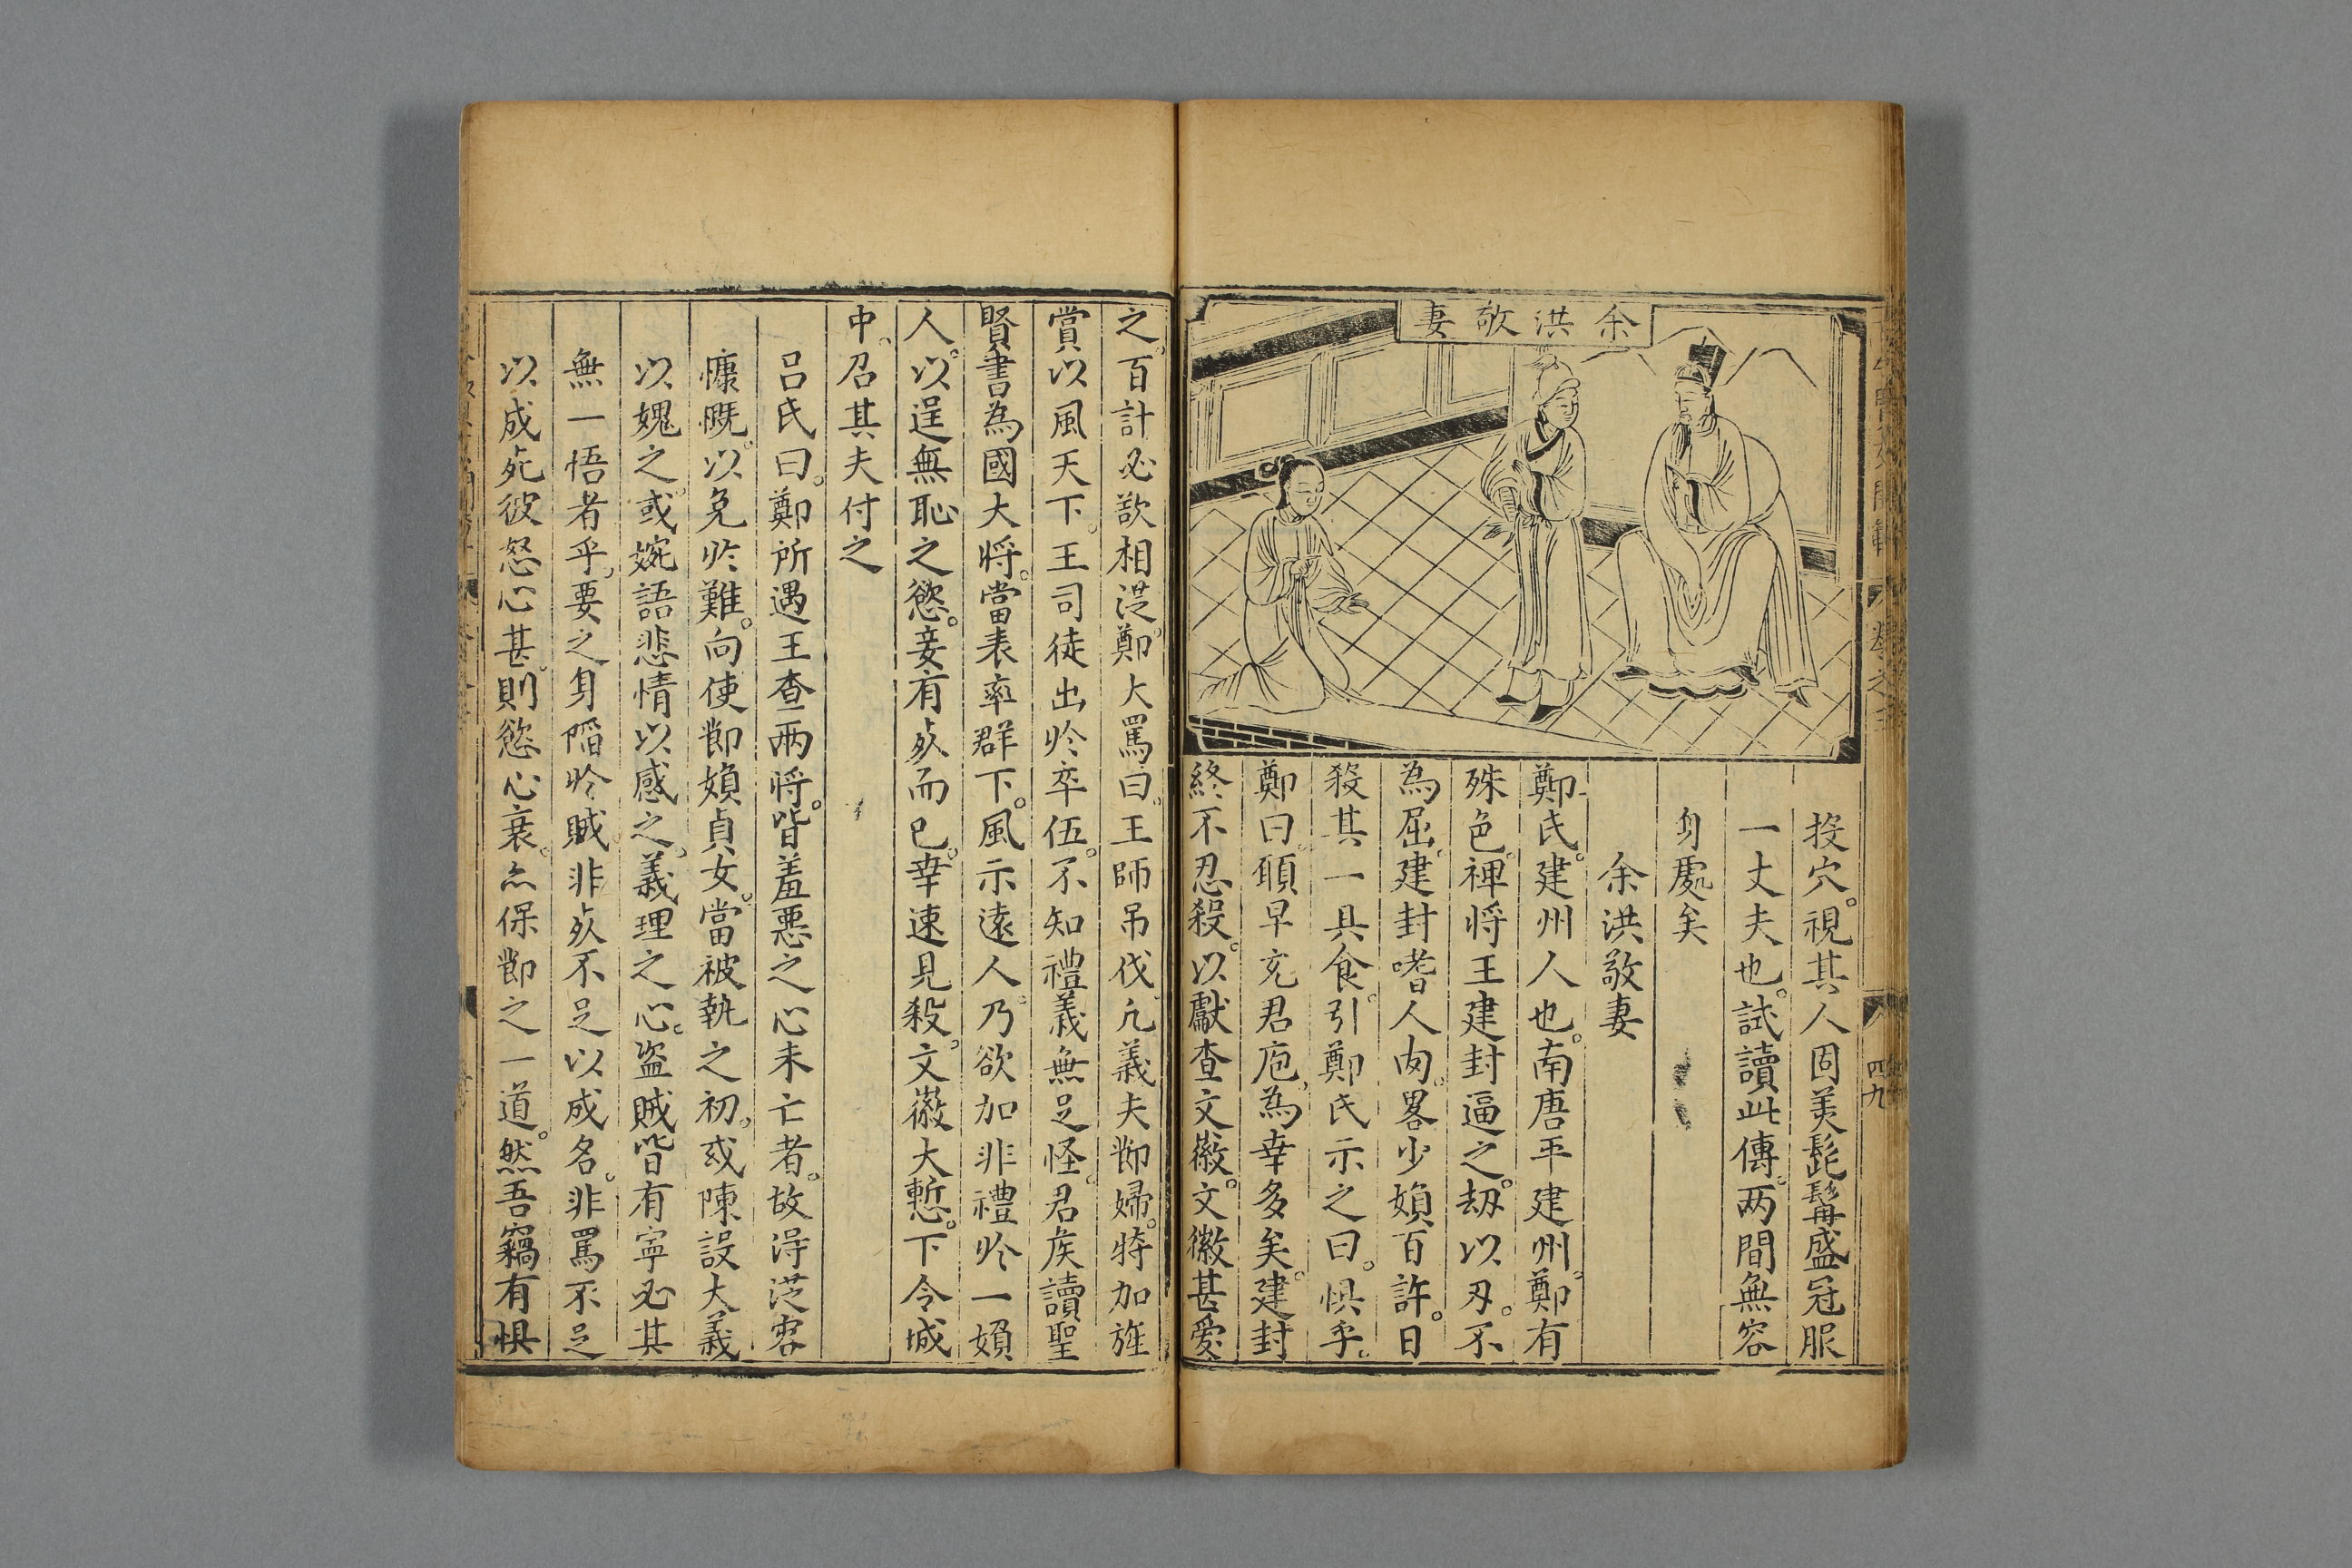 余洪敬妻
投穴。視其人固美髭髯盛冠服
一丈夫也。試讀此傳。两間無容
身處矣
余洪敬妻
鄭氏。建州人也。南唐平建州。鄭有
殊色。裨将王建封逼之。刼以刃。不
為屈。建封嗜人肉。畧少婦百許。日
殺其一具食。引鄭氏示之曰。惧乎。
鄭曰。願早充君庖。為幸多矣。建封
終不忍殺。以獻查文徽。文徽甚愛
之。百計必欲相從。鄭大罵曰。王師吊伐。凢義夫節婦。特加旌
賞以風天下。王司徒出於卒伍。不知禮義無足怪。君侯讀聖
賢書為國大将。當表率群下。風示遠人。乃欲加非禮於一婦
人。以逞無恥之慾。妾有死而已。幸速見殺。文徽大慙。下令城
中。召其夫付之
吕氏曰。鄭所遇王查兩将。皆羞惡之心未亡者。故淂從容
慷慨。以免於難。向使節婦貞女。當被執之初。或陳設大義
以媿之。或婉語悲情以感之。義理之心。盗賊皆有寧必其
無一悟者乎。要之身陷於賊。非死不足以成名。非罵不足
以成死彼怒心甚。則慾心衰。亦保節之一道。然吾竊有惧
四九